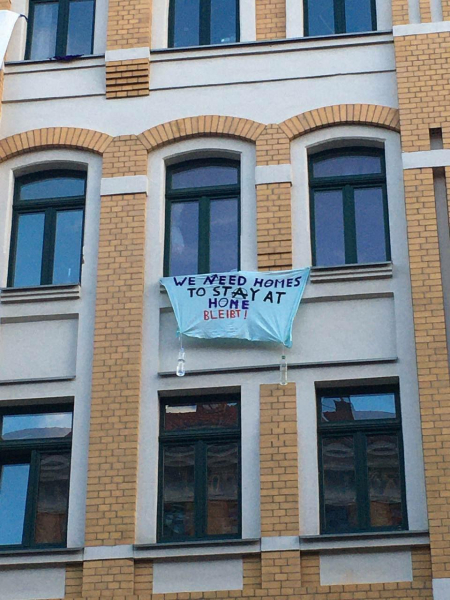 WE NEED HOMES
TO STAY AT
HOME
BLEIBT!